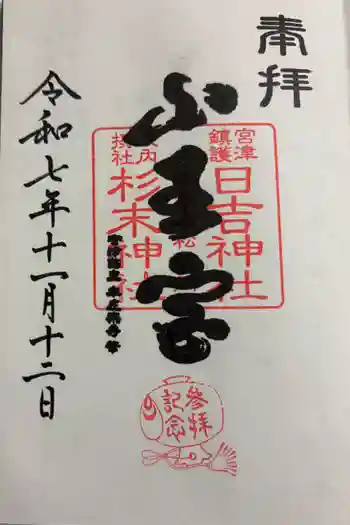 奉拝
山王宮
宮津
鎮護
日吉神社
境内
摂社
杉末神社
令和七年十一月十二日
参拝
記念